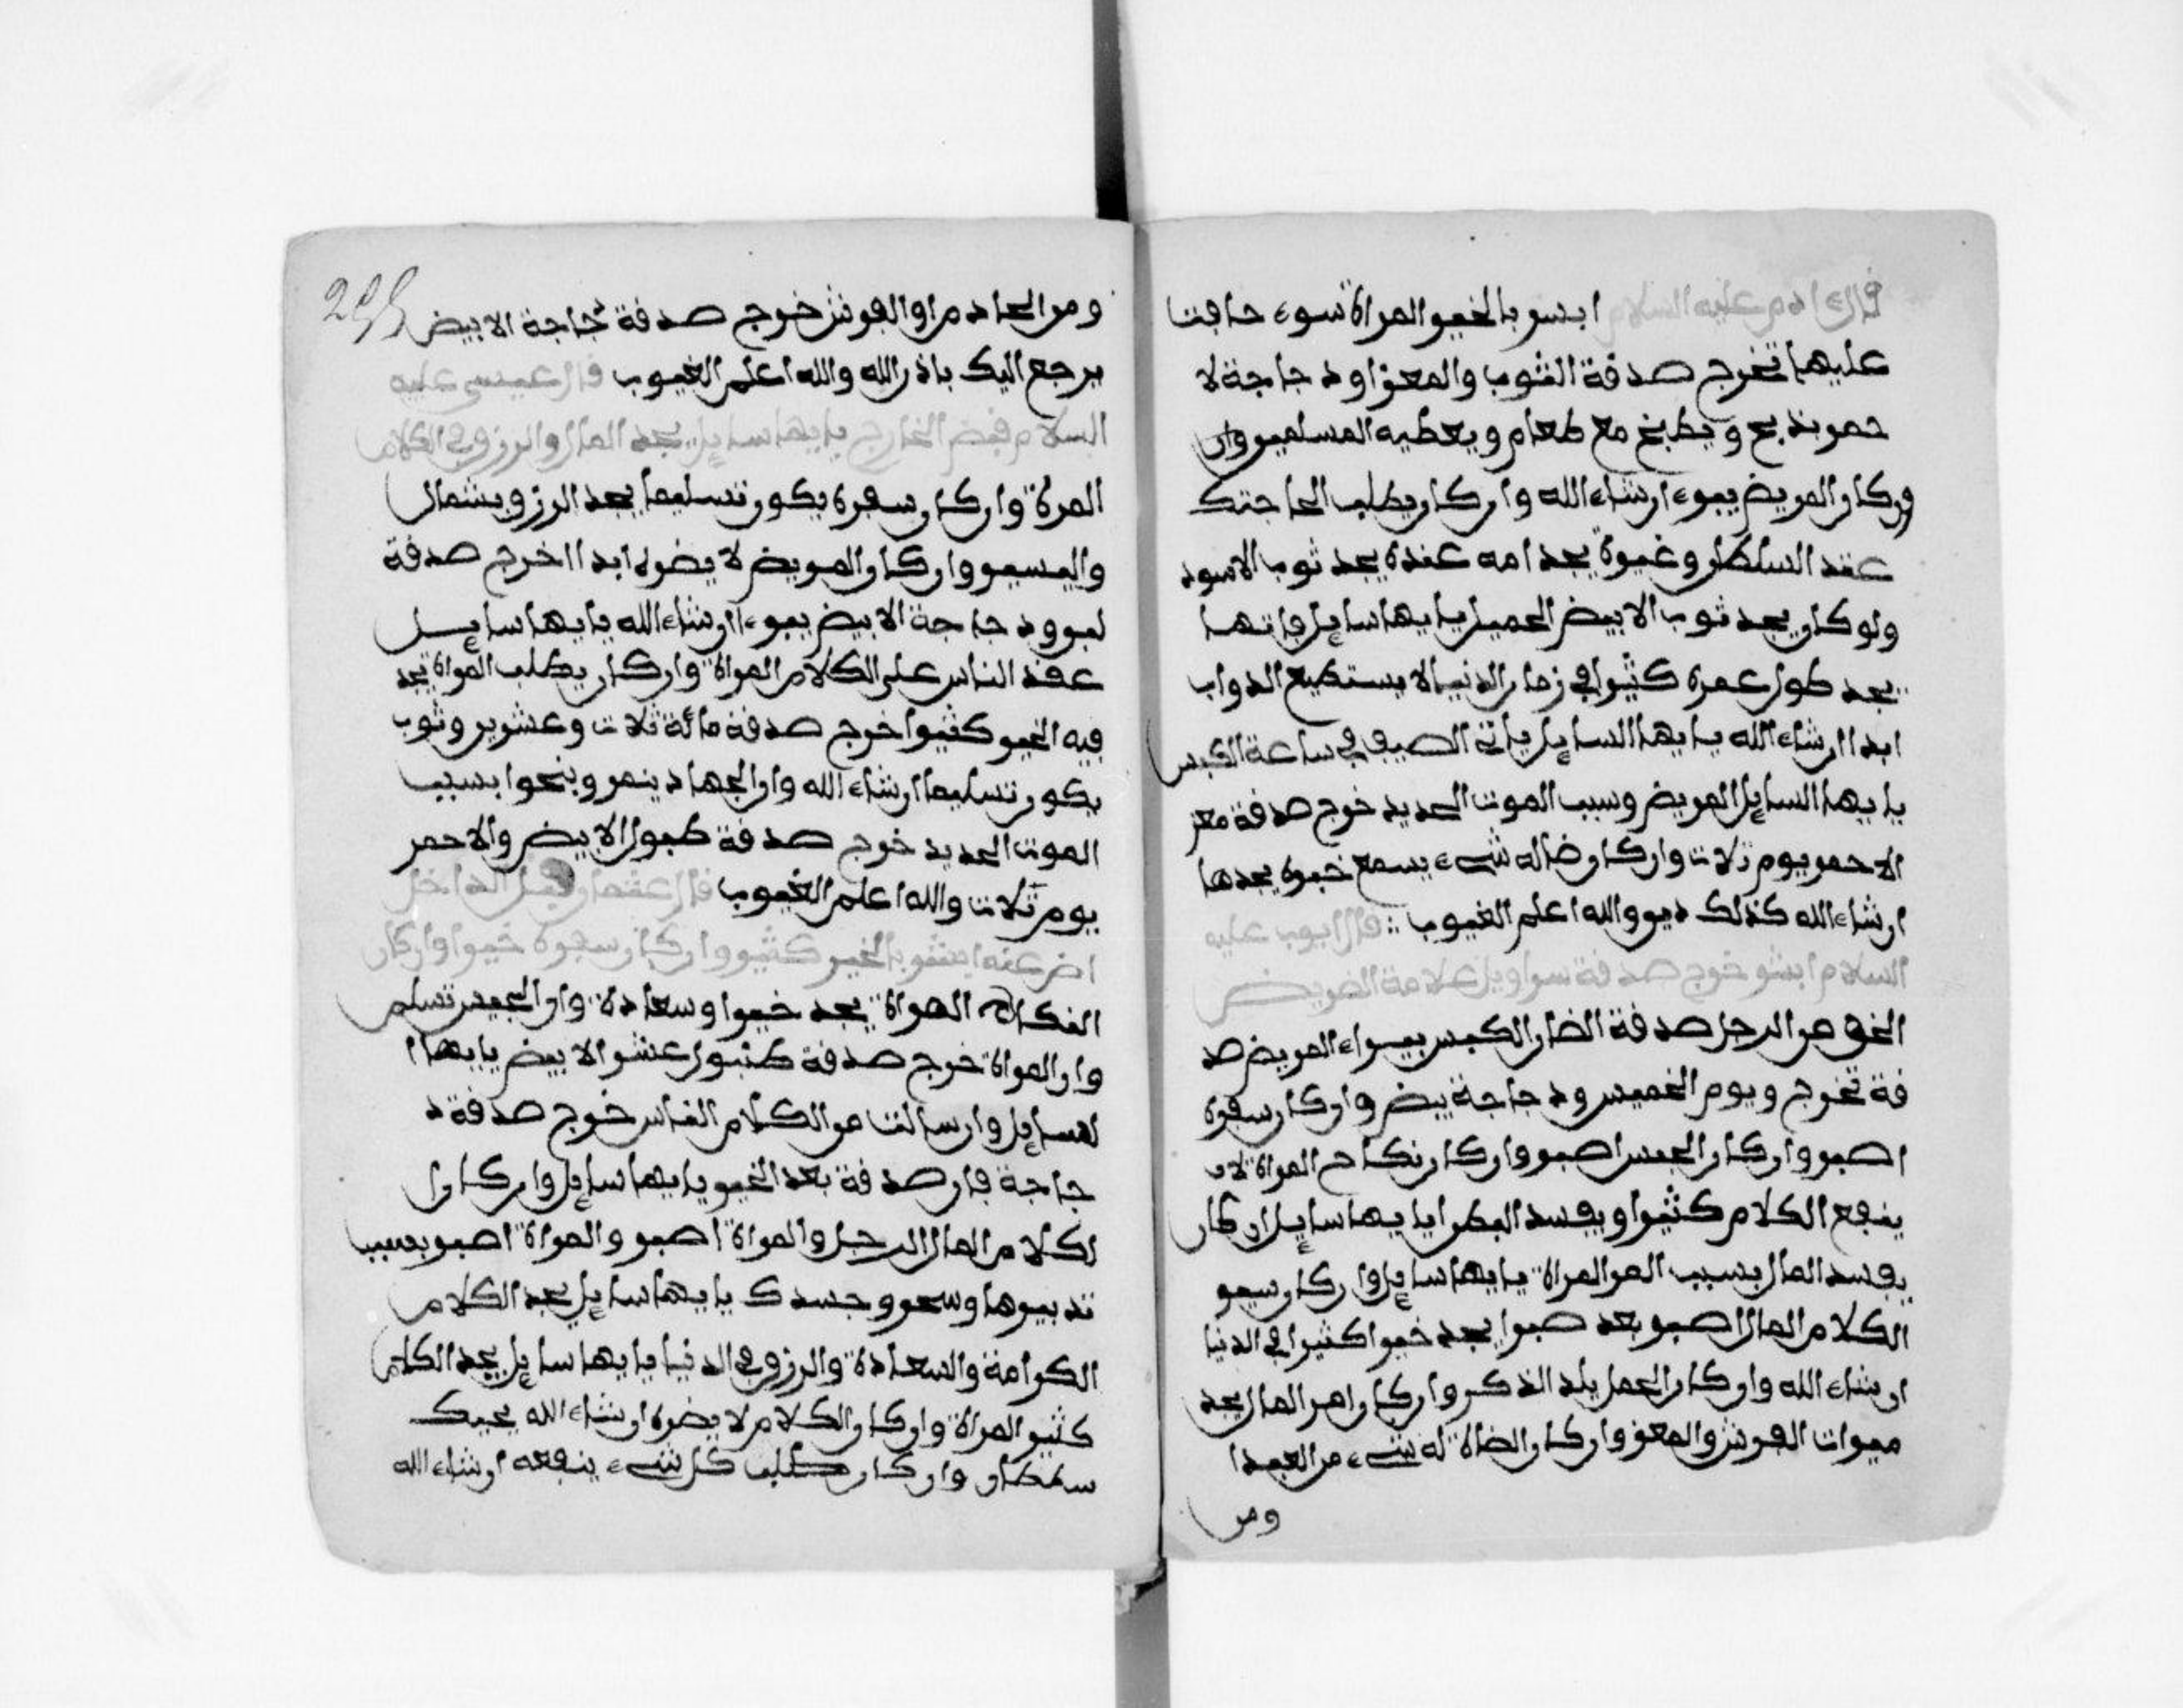 قال ادم عليه السلام ابشر بالخير المراة سوء حافت
عليها تخرج صدقة الثوب والمعز او دجاجة لا
حمر يذبح ويطبخ مع طعام ويعطيه المسلمين وان
وركان المريض يبرء ان شاء الله وان كان يطلب الحاجتك
عند السلطان وغيره يجد امه عنده يجد ثوب الاسود
ولو كان يجد ثوب الابيض الجميل يا يها سايل فاتها
يجد طول عمره كثيرا في زمان الدنيا لا يستطيع الدواب
ابدا ان شاء الله يا يها السايل ياتي الصيف في ساعة الكبس
يا يها السايل المريض وسبب الموت الحديد خرج صدقة معز
الاحمر يوم ثلاث وان كان ضاله شيء يسمع خبره يجدها
ان شاء الله كذلك دير والله اعلم الغيوب قال ايوب عليه
السلام ابشر خرج صدقة سراويل علامة المريض
الخو من الرجل صدقة الضان الكبس بيسراء المريض صد
قة تخرج ويوم الخميس ودجاجة بيض وان كان سفره
اصبر وان كان الجيس اصبر وان كان نكاح المراة لا
ينفع الكلام كثيرا ويفسد البطر يا يها سايل ان كان
يفسد المال بسبب المر المراة يا يها سايل وان كان سير
الكلام المال اصبر بعد صبرا يجد خيرا كثيرا في الدنيا
ان شاء الله وان كان الحمل يلد الذكر وان كان امر المال يجد
ميراث الفرش والمعز وان كان الضالة له شيء من العبد ا
ومن
ومن الحادم او الفرش خرج صدقة دجاجة الابيض
يرجع اليك باذن الله والله اعلم الغيوب قال عيسى عليه
السلام قبض الخارج يا يها سايل يجد المال والرزق في الكلام
المرة وان كان سفره يكون تسليما يجد الرزق بشمال
واليمين وان كان المريض لا يضره ابدا اخرج صدقة
لبن ودجاجة الابيض يبرء ان شاء الله يا يها سايل
عقد الناس على الكلام المراة وان كان يطلب المراة يجد
فيه الخير كثيرا خرج صدقة مائة ثلاث وعشرين وثوب
يكون تسليما ان شاء الله وان الجهاد ينصر وينجوا بسبب
الموت الحديد خرج صدقة طبول الابيض والاحمر
يوم ثلاث والله اعلم الغيوب قال عثمان قبض الداخل
رضي عنه ابشر بالخير كثير وان كان سفره خيرا وان كان
النكاح المراة يجد خيرا وسعادة وان الجيس تسلم
وان المراة خرج صدقة عشر الابيض يا يها ا
لسايل وان سالت من الكلام الناس خرج صدقة د
جاجة فان صدقة بعد الخير يا يها سايل وان كان ا
لكلام المال الرجل والمراة اصبر والمراة اصبر بسبب
تدبيرها وسحر وجسدك يا يها سايل يجد الكلام
الكرامة والسعادة والرزق في الدنيا يا يها سايل يجد الكلام
كثير المراة وان كان الكلام لا يضره ان شاء الله يحبك
سلطان وان كان طلب كل شيء ينفعه ان شاء الله